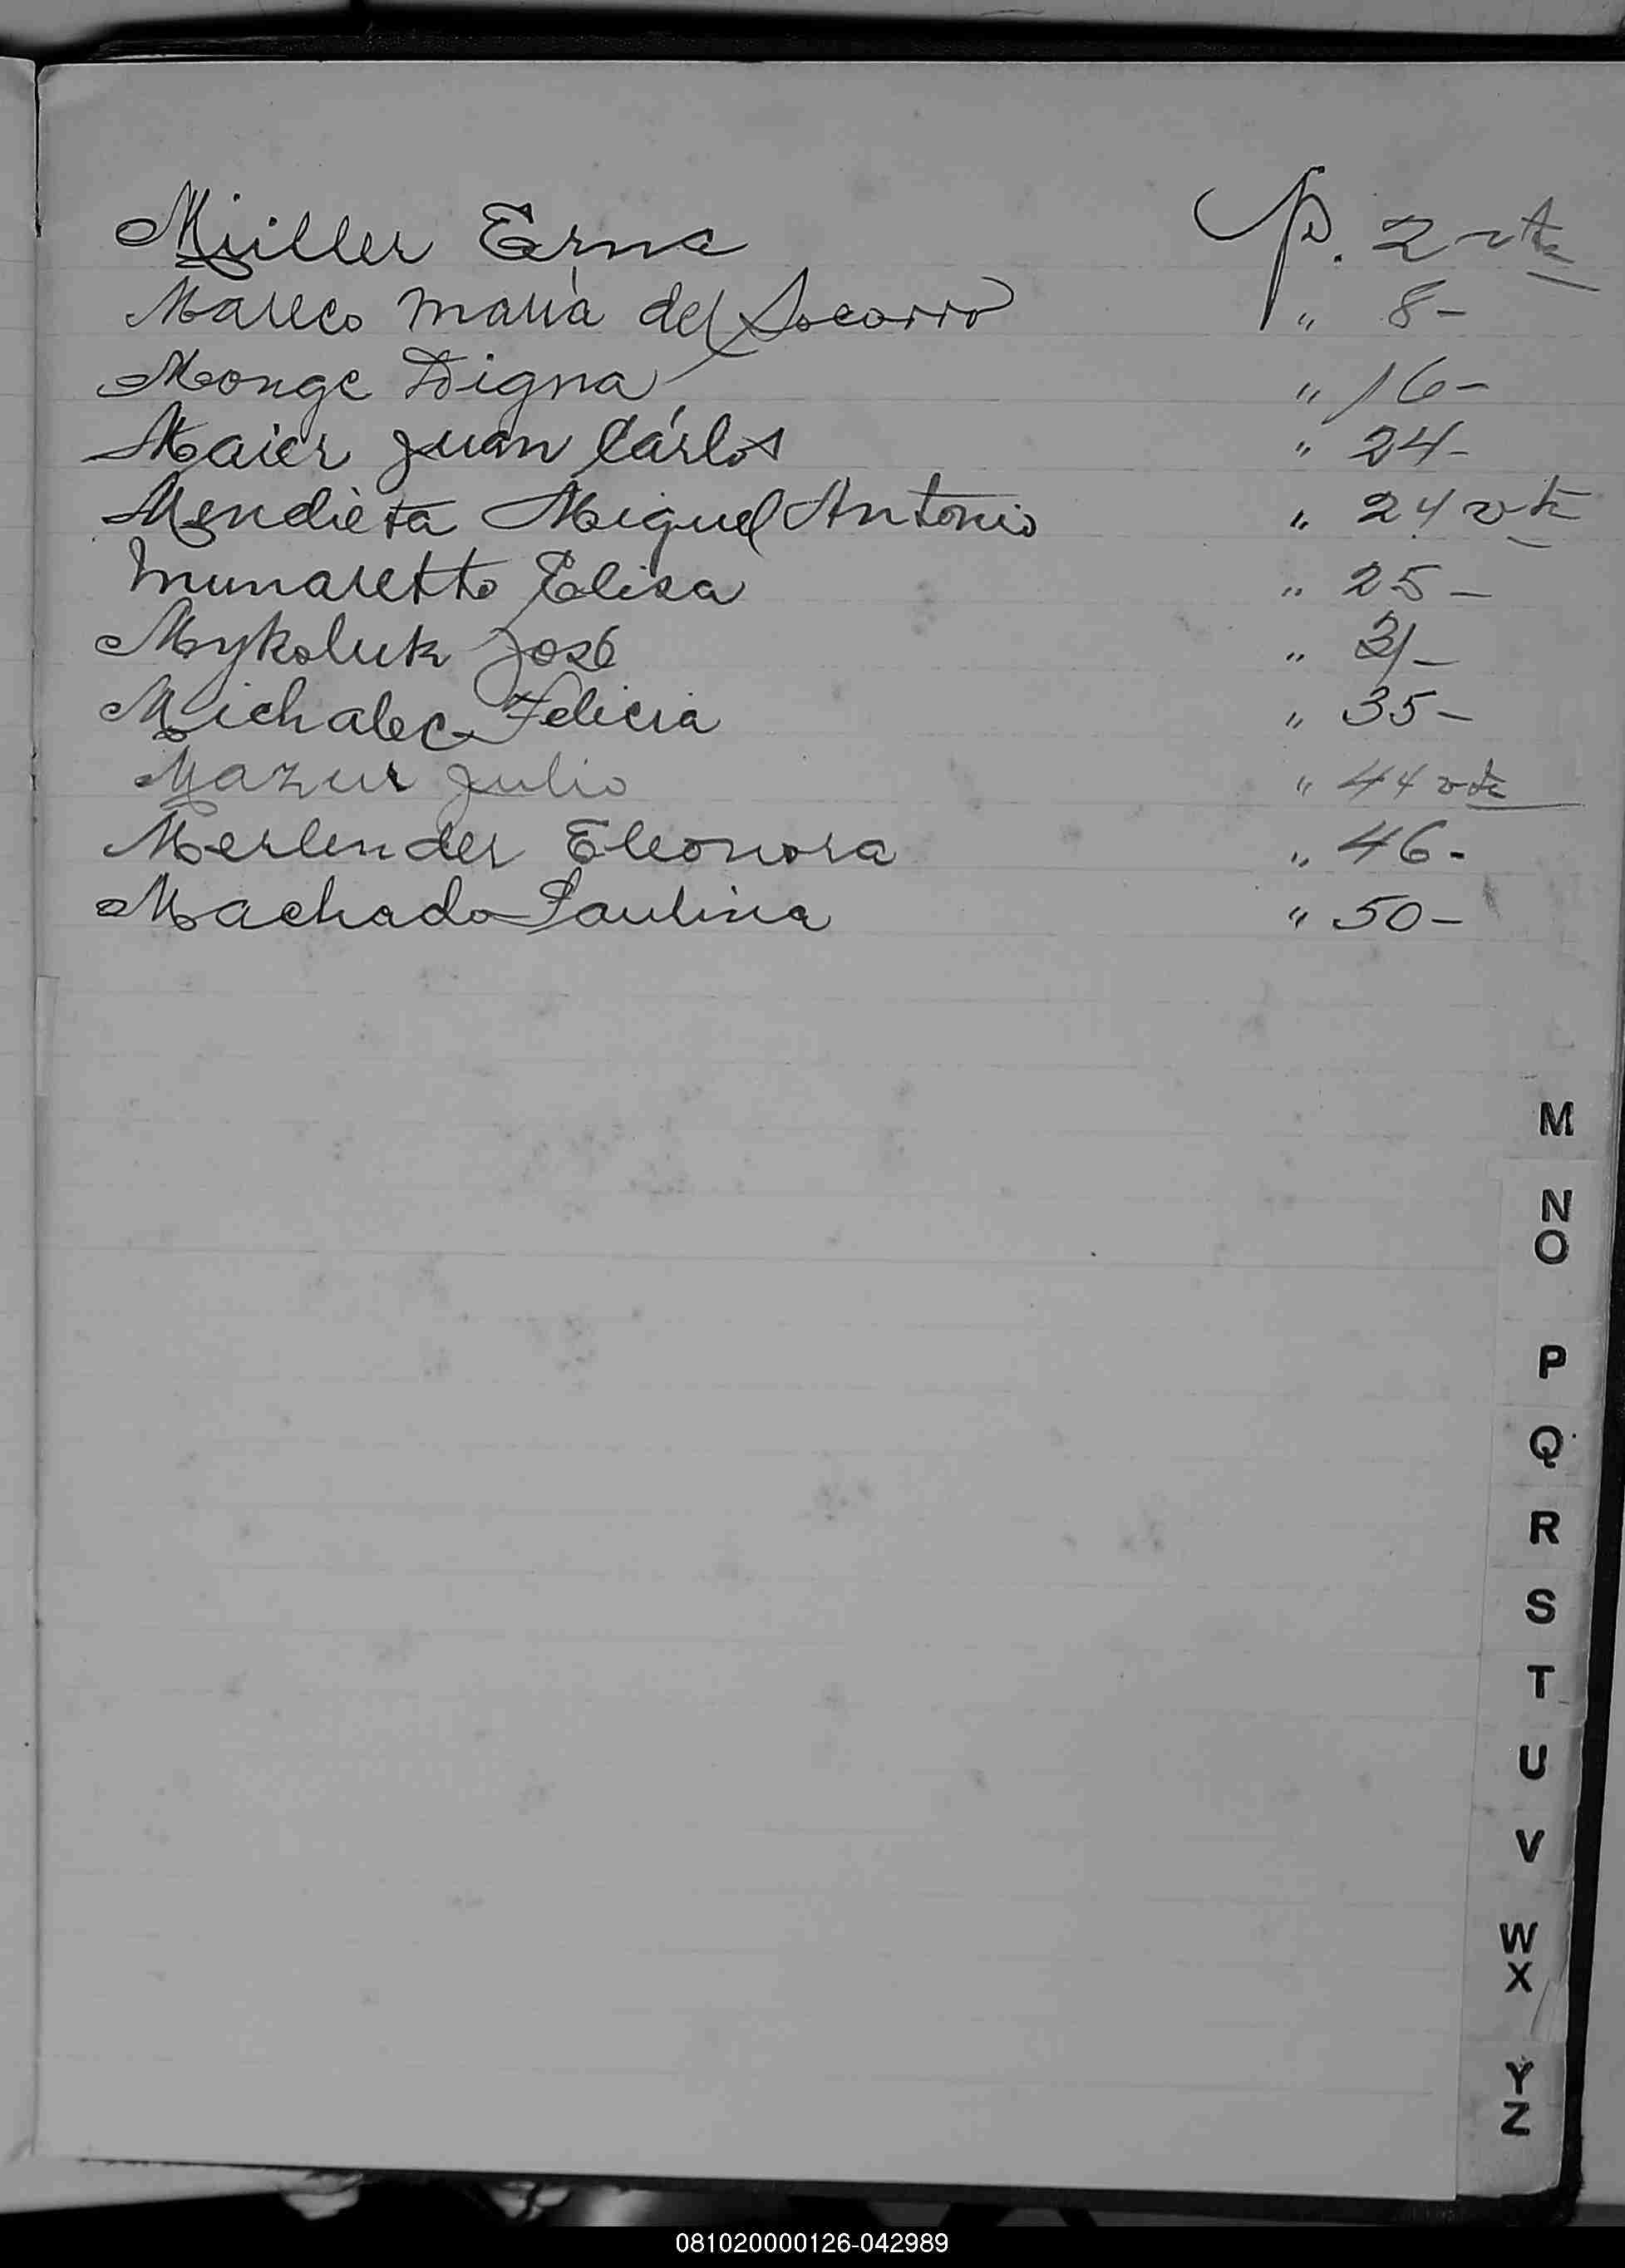 Müller Erna p. 2 vta
Mareco María del Socorro " 8-
Monge Digna " 16-
Maier Juan Cárlos " 24-
Mendieta Miguel Antonio " 24 vta
Munaretto Elisa " 25-
Mykoluk José "
Michalec Felicia " 35-
Mazur Julio " 44 vta
Merlender Eleonora " 46-
Machado Paulina " 50-
M
N
O
P
Q
R
S
T
U
V
W
X
Y
Z
081020000126-042989